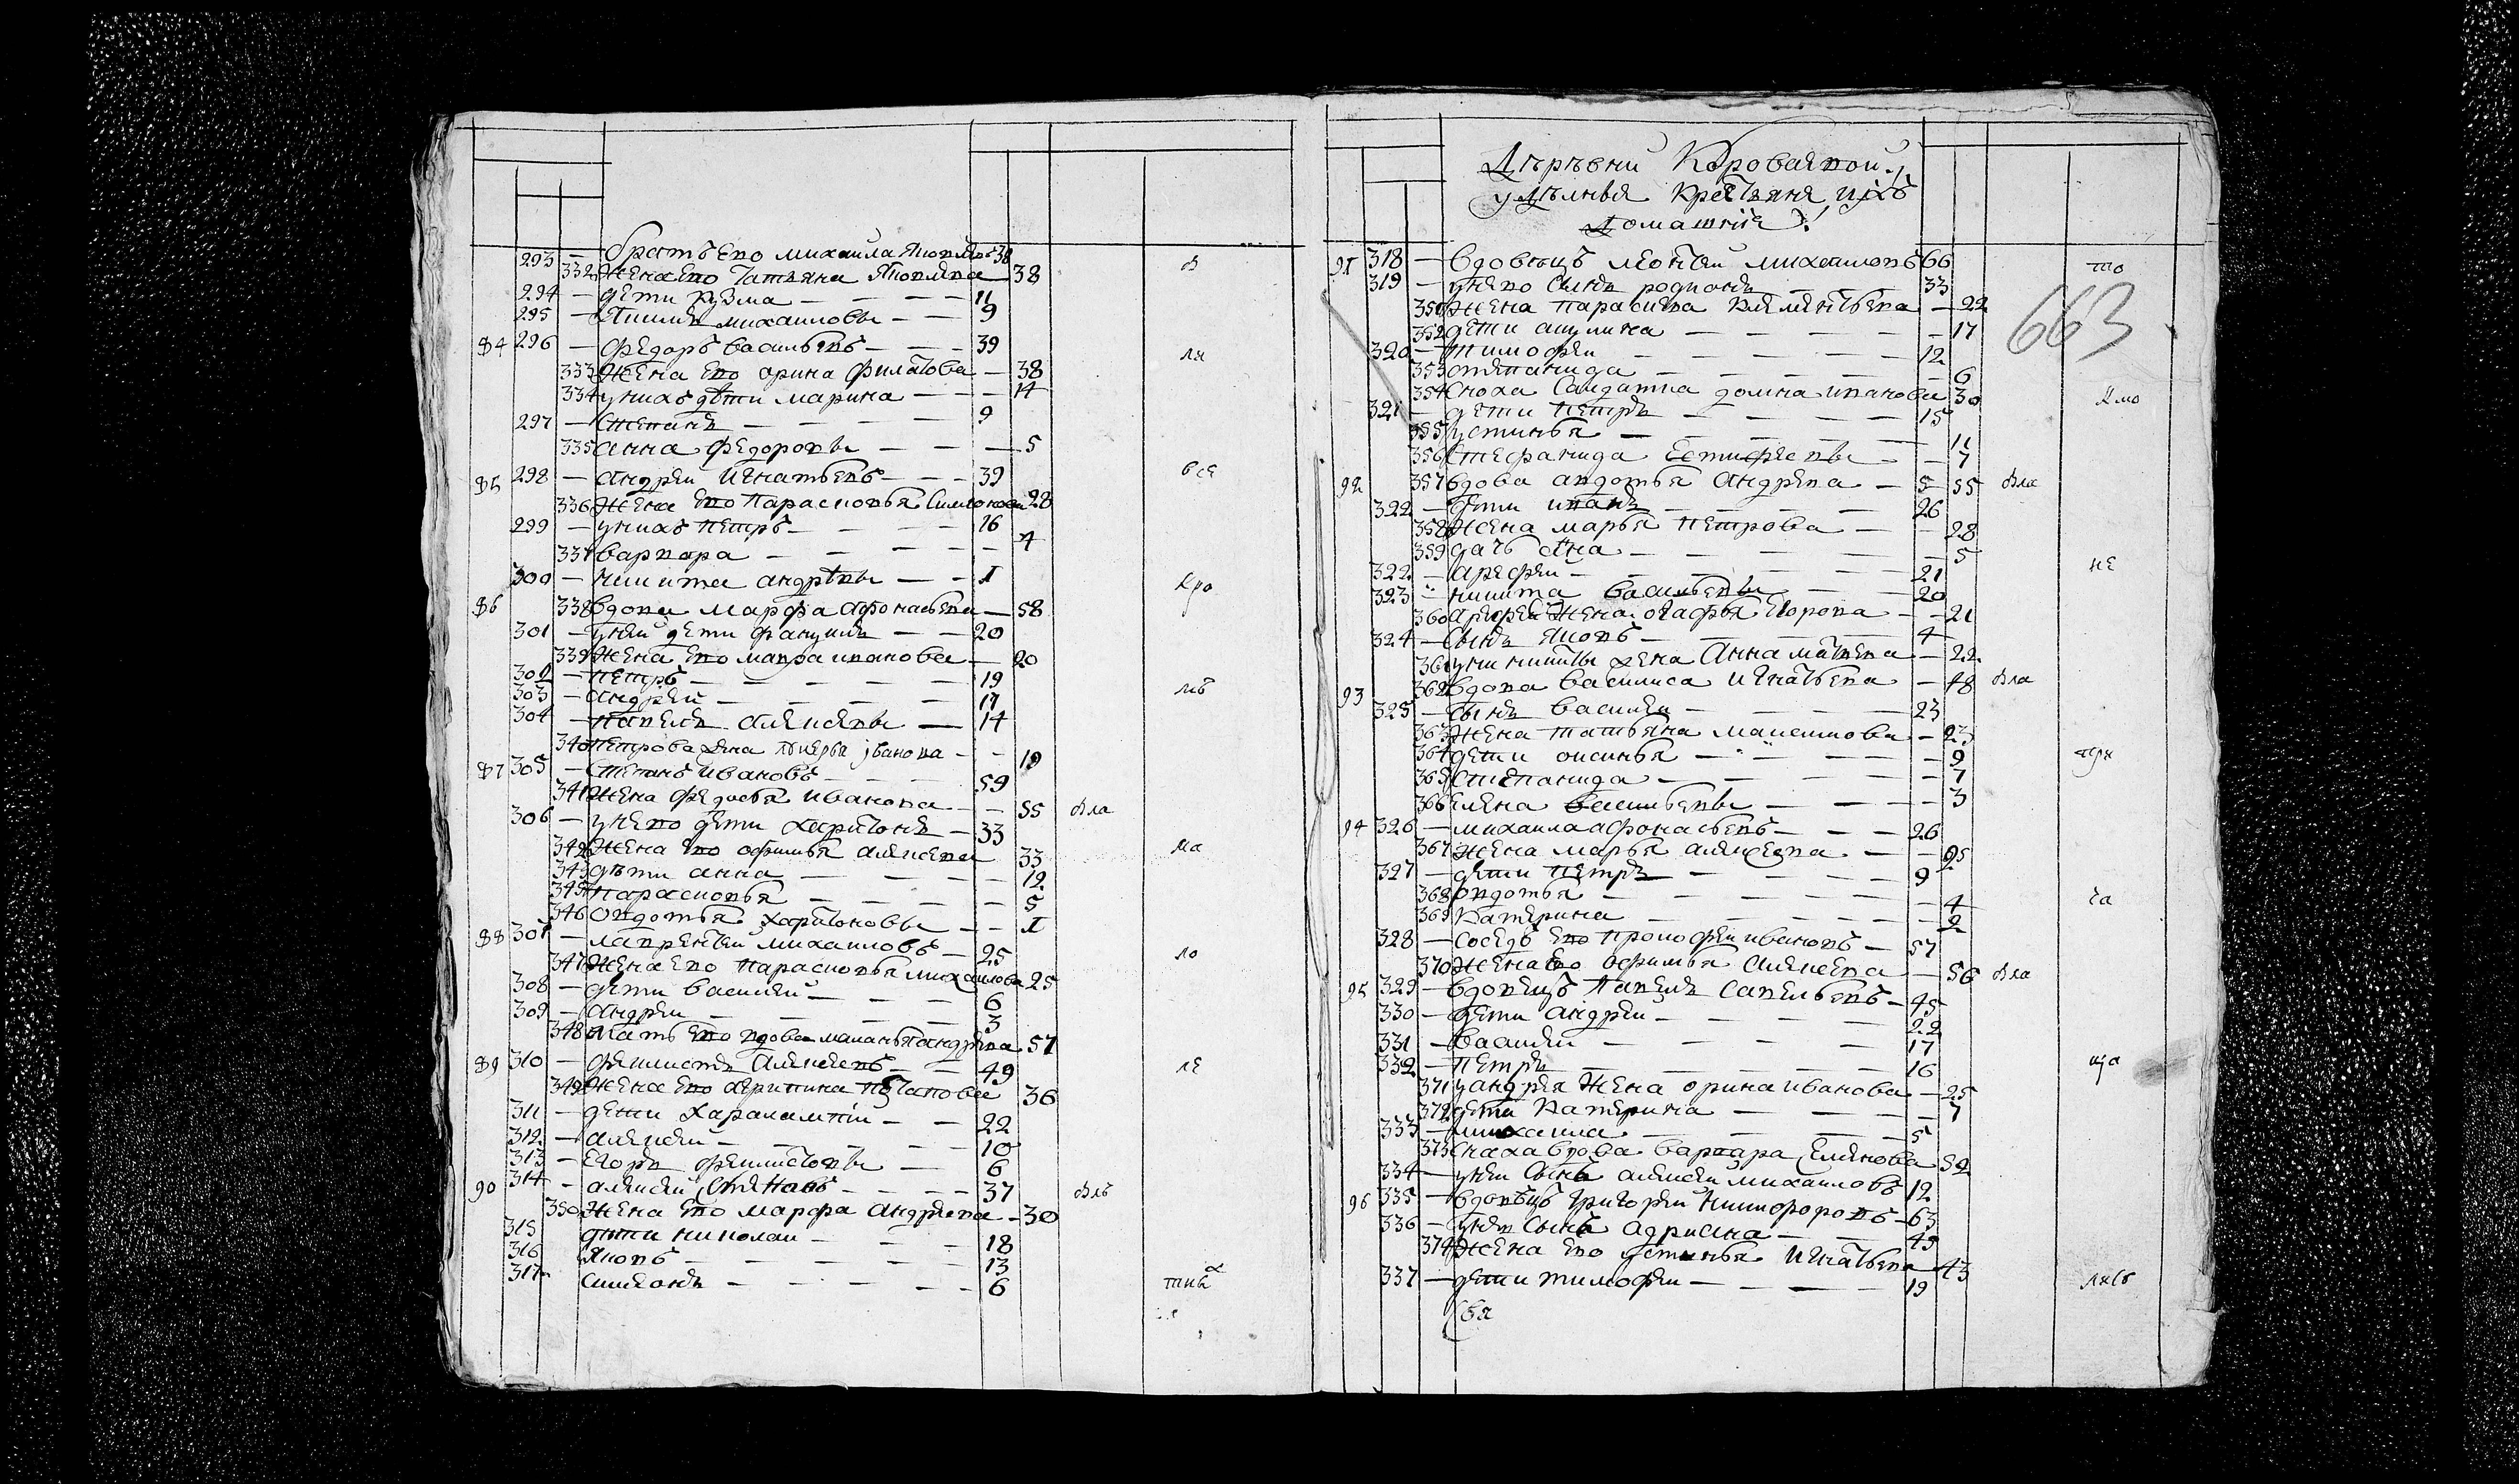 293 — братъ ево михаила Яковлевъ 38
332 жена ево Татьяна Яковлева — 38 в
294 — дети кузма — 11
295 — михаиловы — 9
84 296 — федоръ васильевъ — 39 ля
333 жена ево орина филатова — 38
334 у нихъ дѣти марина — 14
297 — степанъ — 9
335 анна федоровы — 5
85 298 — андреи Игнатьевъ — 39 все
336 жена ево Парасковья Симонова 28
299 — у нихъ петръ — 16
337 варвара — 4
300 — никита андрѣевы — 1 кро
86 338 вдова марфа афонасьева — 58
301 — у неи дети — 20
339 жена ево мавра иванова — 20
302 — петръ — 19
303 — андреи — 17 мѣ
304 — павелъ алексеевы — 14
340 Петрова жена иванова — 19
87 305 — Степанъ ивановъ — 59
341 жена Федосья иванова — 55 вла
306 — у нево дети харитонъ — 33
342 жена ево офимья алексеева 33 ма
343 дѣти анна — 12
345 парасковья — 5
346 овдотья харитоновы — 1
88 307 — лаврентеи михаиловъ — 25
347 жена ево парасковья михаилова 25 ло
308 — дети василеи — 6
309 — андреи — 3
348 мать ево вдова маланья андреева 57
89 310 — феклистъ алексеевъ — 49 ле
349 жена ево агрипина потапова 36
311 — дети харалампіи — 22
312 — алексеи — 10
313 — егоръ феклистовы — 6
90 314 — алексеи Степановъ — 37 вль
350 жена ево марфа андреева — 30
315 дѣти николаи — 18
316 Яковъ — 13
317 симеонъ — 6 тика
Дѣрѣвни Коровацкой
удѣлныя крестьяня ихъ
домашнія
663
91 318 — вдовецъ леонтеи михаиловъ 66 то
319 — у нево сынъ родионъ — 33
350 жена парасковя клементьева — 22
352 дети акулина — 17
320 — тимофеи — 12
353 степанида — 6
354 сноха салдатка домна иванова 30 кмо
321 — дети петръ — 15
355 устинья — 11
356 степанида — 7
92 357 вдова авдотья андреева — 55 вла
322 — дети иванъ — 26
358 жена марья петрова — 28
359 дачь Ана — 5
322 — арефеи — 21 не
323 никита васильевы — 20
360 арефеи жена огафья Егорова — 21
324 — сынъ яковъ — 4
361 у никиты жена Анна матвеева — 22
93 362 вдова василиса игнатьева — 48 вла
325 — сынъ василеи — 23
363 жена татьяна максимова — 23
364 дети оксинья — 9 при
365 степанида — 7
366 елена васильевы — 3
94 326 — михаила афонасьевъ — 26
367 жена марья алексеева — 25
327 — дети петръ — 9
368 овдотья — 4 ча
369 катерина — 2
328 — соседъ ево прокофеи ивановъ — 57
370 жена ево офимья алексеева — 56 вла
95 329 — вдовецъ павелъ савельевъ — 45
330 — дети андреи — 22
331 — василеи — 17
332 — петръ — 16 ща
371 у андрея жена орина иванова — 25
372 дети катерина — 7
333 — михаила — 5
373 снаха вдова варвара Емелянова 52
334 — у неи сынъ алексеи михаиловъ 12
96 335 — вдовецъ григореи никифоровъ — 63
336 — у нево сынъ адриана — 43
374 жена ево устинья игнатьева 43
337 — дети тимофеи — 19 лись